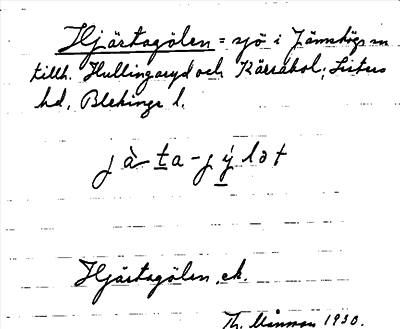 Hjärtagölen = sjö i Jämshögs sn
tillh. Hullingaryd och Kärrabol; Listers
hd, Blekinge l.
jà ta-jýlət
Hjärtagölen, ek.
Th. Månsson 1930.